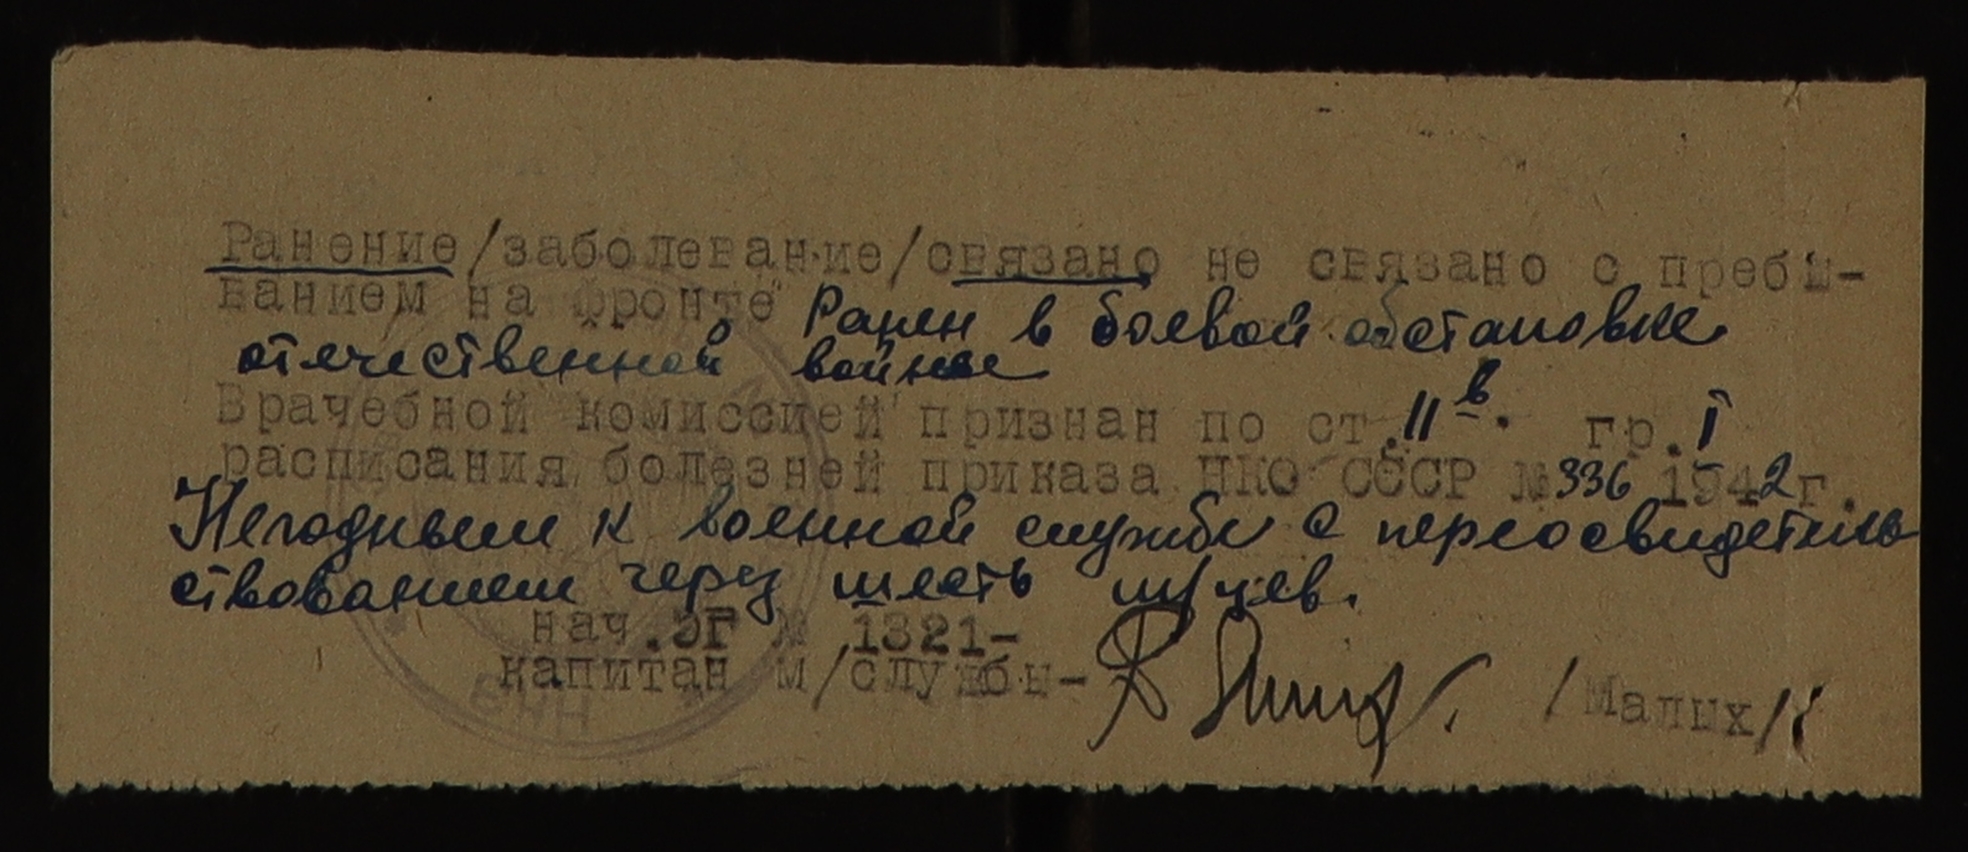 Ранение/заболевание/связано не связано с пребы-
ванием на фронте Ранен в боевой обстановке
отечественной войны
Врачебной комиссией признан по ст. 11 в. гр. I
расписания болезней приказа НКО СССР № 336 1942 г.
Негодным к военной службе с переосвидетель
ствованием через шесть м/цев.
нач.ЭГ № 1321-
капитан м/службы- /Малих/